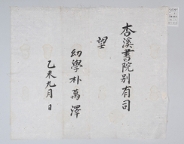 杏溪書院別有司
望
幼學朴萬澤
乙未九月 日